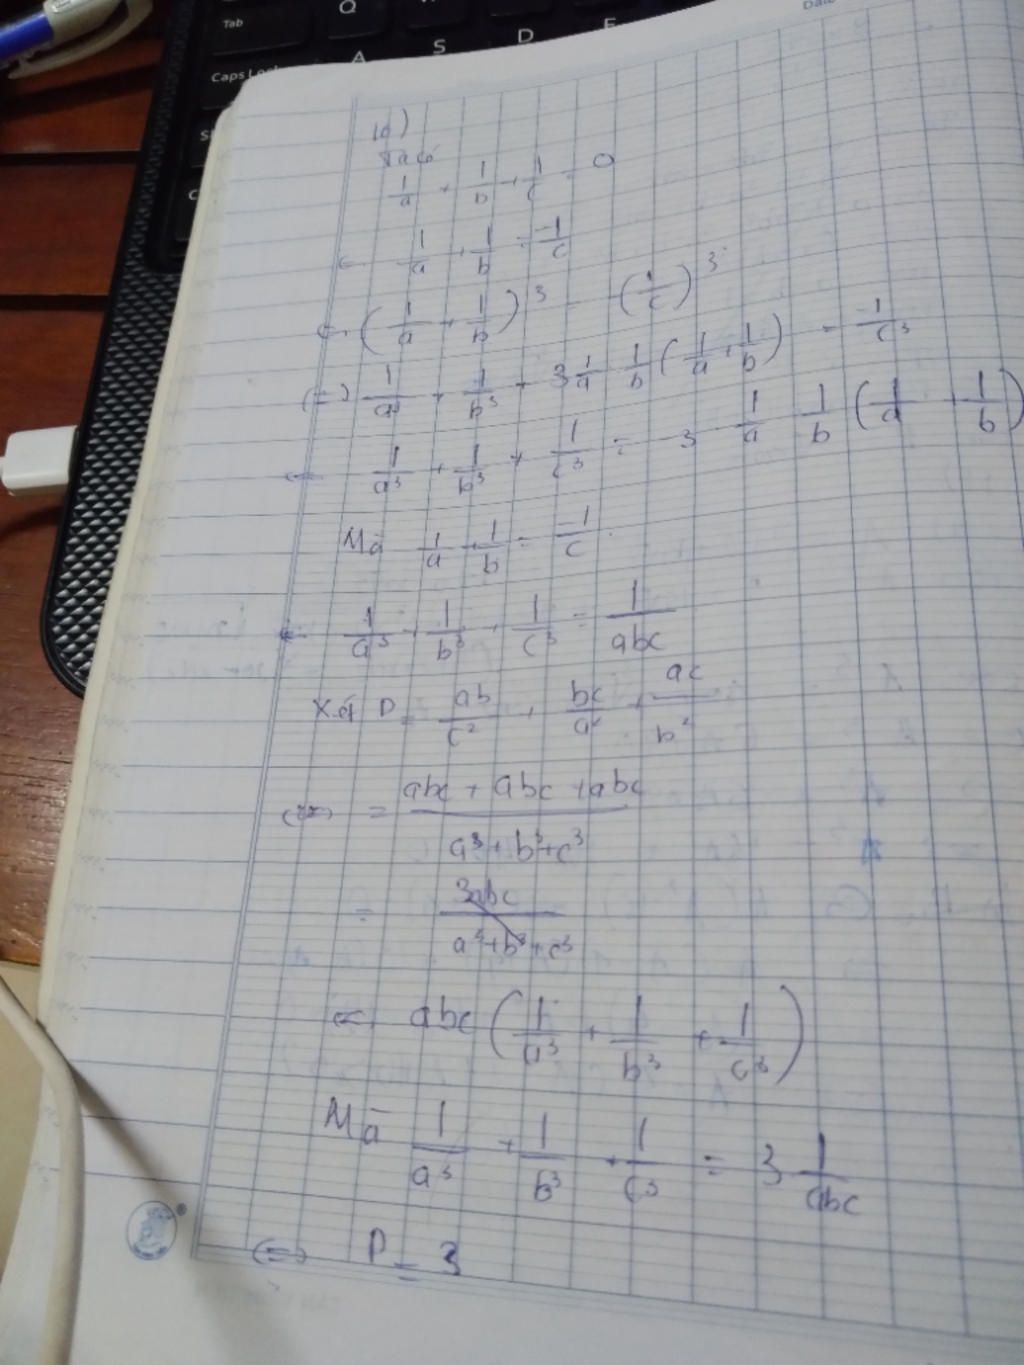 Tab
Q
Caps Lock
A
S
D
Date
10)
Ta có
1/a + 1/b + 1/c = 0
⇔ 1/a + 1/b = -1/c
⇔ (1/a + 1/b)³ = (-1/c)³
⇔ 1/a³ + 1/b³ + 3 1/a 1/b (1/a + 1/b) = -1/c³
⇔ 1/a³ + 1/b³ + 1/c³ = -3 1/a 1/b (1/a + 1/b)
Mà 1/a + 1/b = -1/c
⇔ 1/a³ + 1/b³ + 1/c³ = 1/abc
Xét P = ab/c² + bc/a² + ac/b²
⇔ = (abc + abc + abc)/(a³ + b³ + c³)
= 3abc/(a³ + b³ + c³)
⇔ abc (1/a³ + 1/b³ + 1/c³)
Mà 1/a³ + 1/b³ + 1/c³ = 3 1/abc
⇔ P = 3